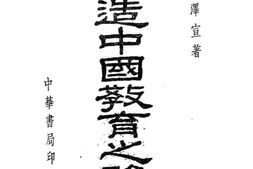 澤宣著
造中國教育之
中華書局印